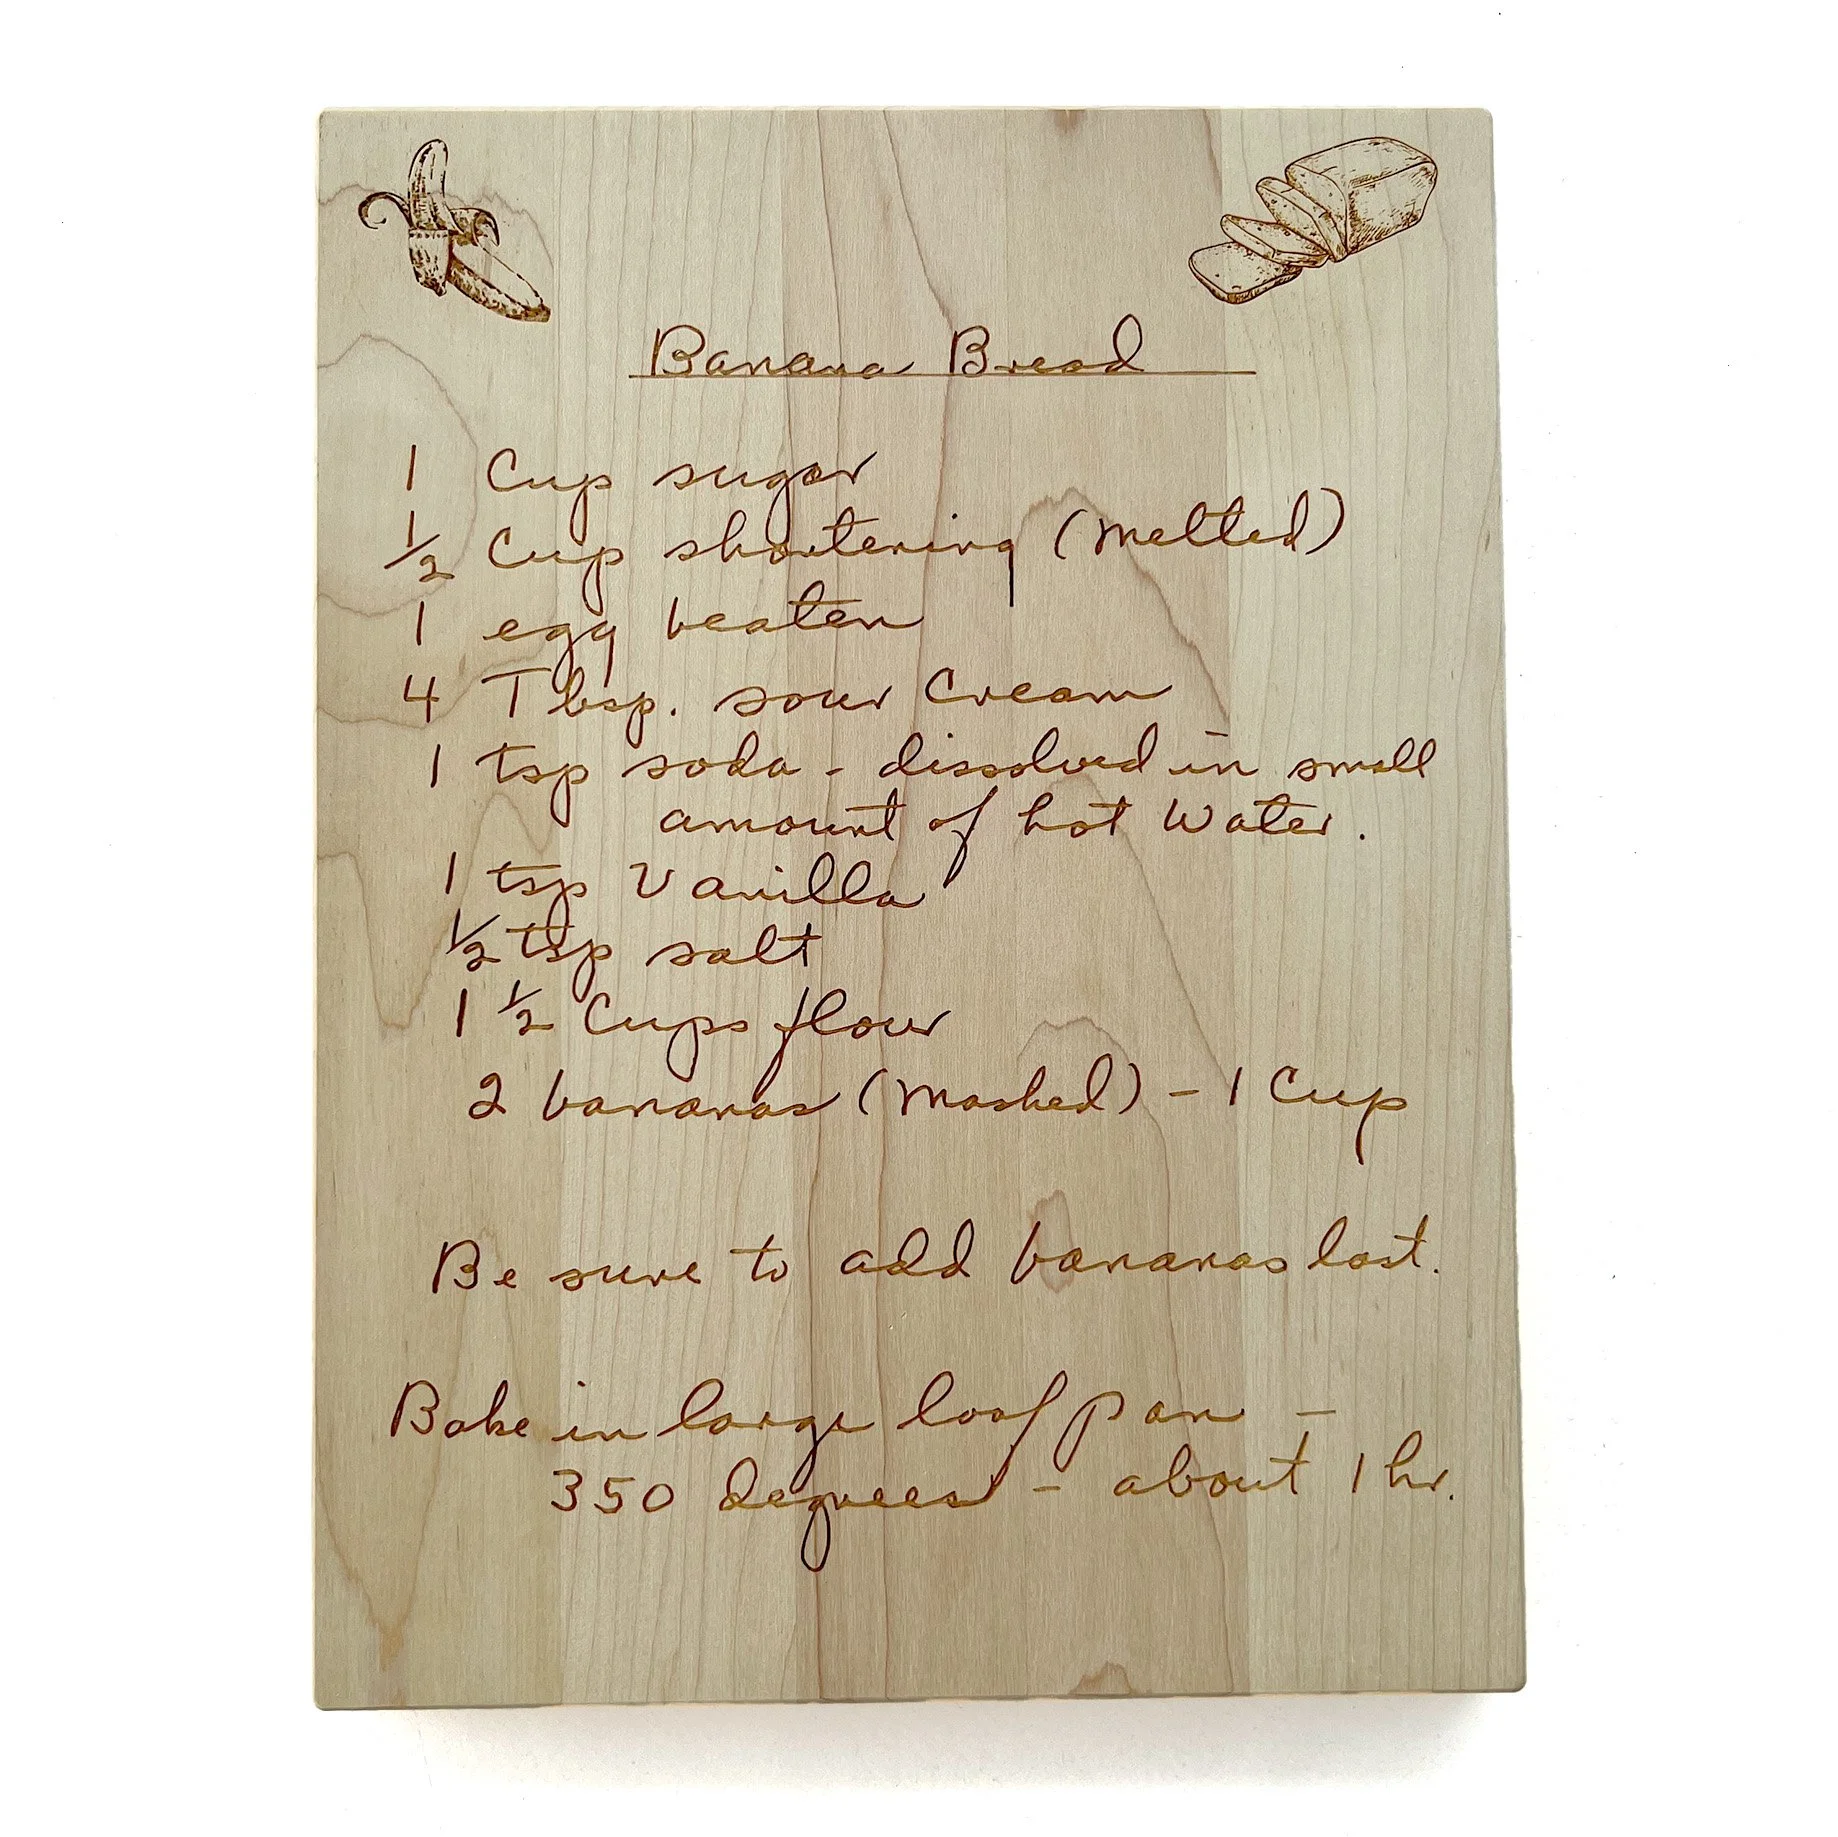 Banana Bread
1 Cup sugar
1/2 Cup shortening (Melted)
1 egg beaten
4 Tbsp. sour Cream
1 tsp soda - dissolved in small
amount of hot Water.
1 tsp Vanilla
1/2 tsp salt
1 1/2 Cups flour
2 bananas (Mashed) - 1 Cup
Be sure to add bananas last.
Bake in large loaf pan -
350 degrees - about 1 hr.